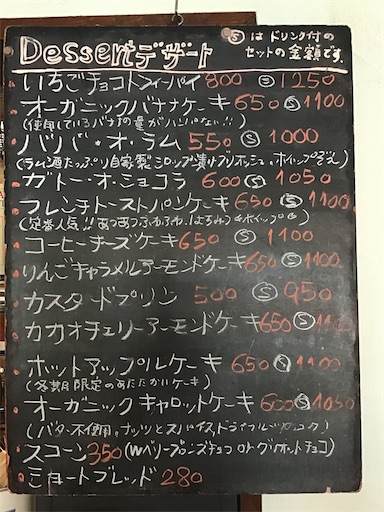 Dessertデザート
Ⓢはドリンク付の
セットの金額です。
いちごチョコトフィーパイ 800 Ⓢ 1250
オーガニックバナナケーキ 650 Ⓢ 1100
(使用しているバナナの量がハンパない!!)
ババ・オ・ラム 550 Ⓢ 1000
(ラム酒たっぷり自家製シロップ漬けブリオッシュ・ホイップぞえ)
ガトー・オ・ショコラ 600 Ⓢ 1050
フレンチトーストパンケーキ 650 Ⓢ 1100
(定番人気!!あつあつふわふわ、はちみつ&ホイップ)
コーヒーチーズケーキ 650 Ⓢ 1100
りんごキャラメルアーモンドケーキ 650 Ⓢ 1100
カスタードプリン 500 Ⓢ 950
カカオチェリーアーモンドケーキ 650 Ⓢ 1100
ホットアップルケーキ 650 Ⓢ 1100
(冬期限定のあたたかいケーキ)
オーガニックキャロットケーキ 600 Ⓢ 1050
(バター不使用。ナッツとスパイスドライフルーツ)
スコーン 350 (Wベリー プルーンチョコ
ショートブレッド 280